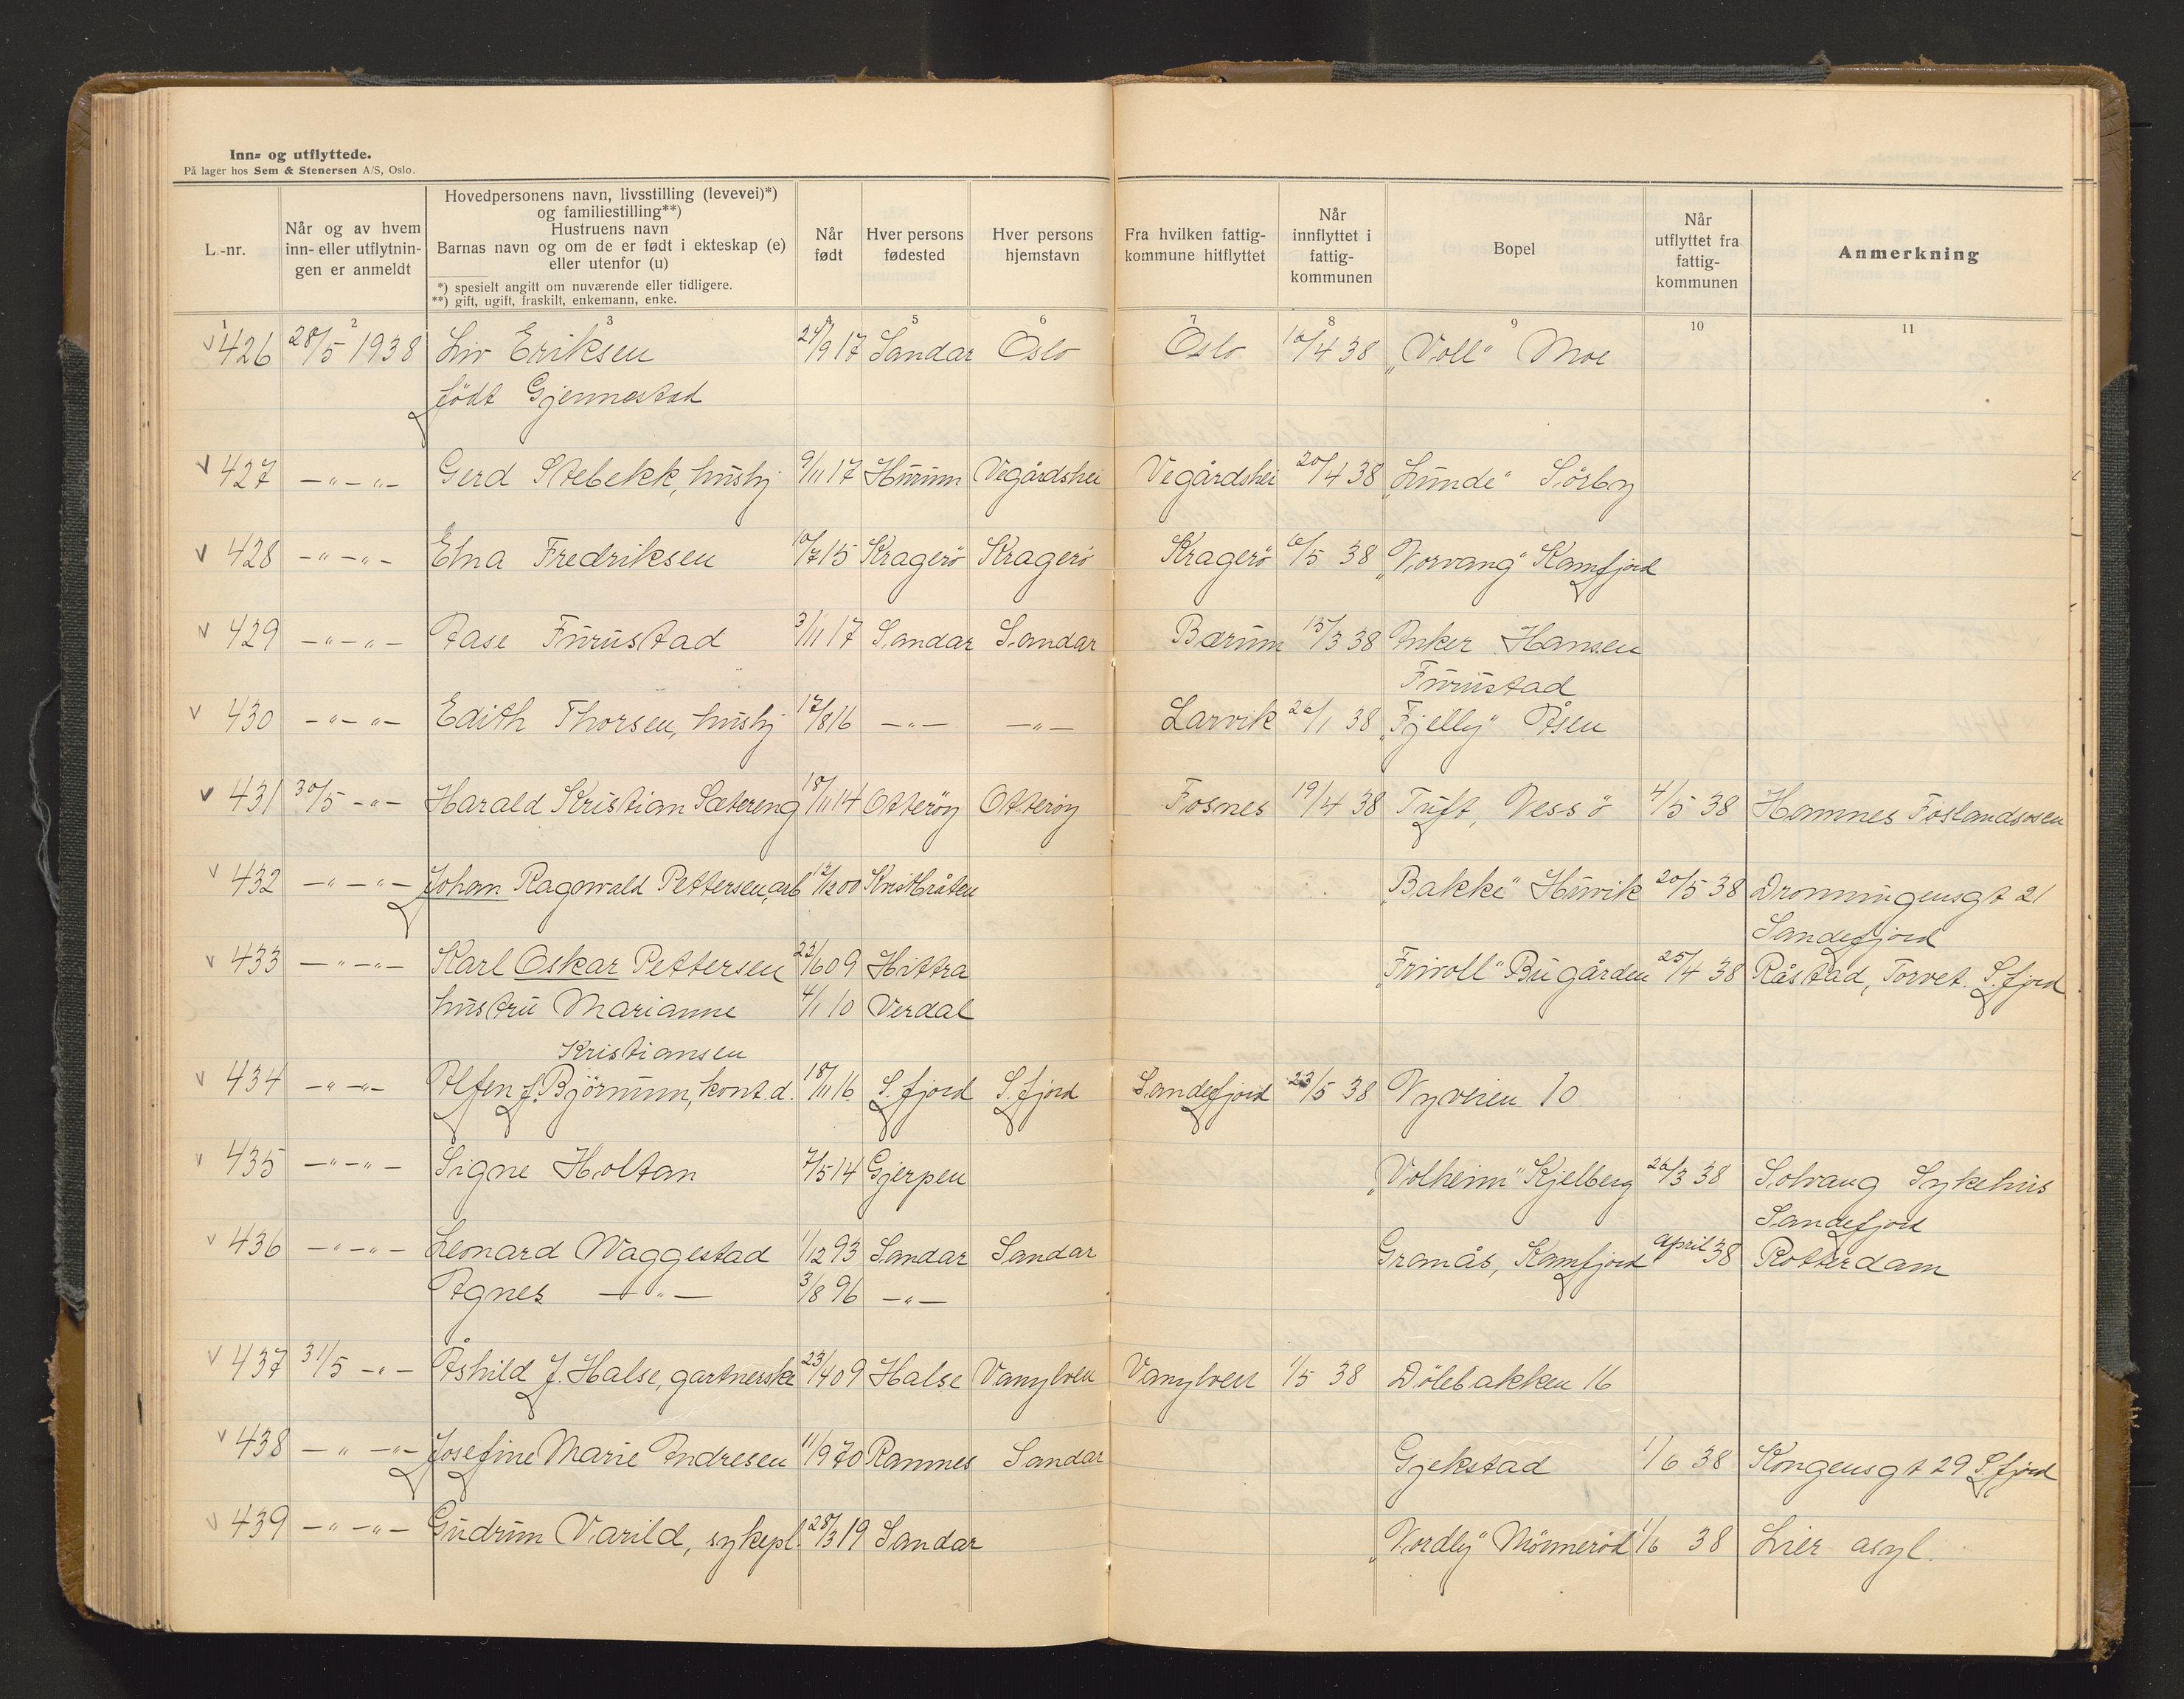 Inn- og utflyttede.
På lager hos Sem & Stenersen A/S, Oslo.
L.-nr.
Når og av hvem inn- eller utflytnin-gen er anmeldt
Hovedpersonens navn, livsstilling (levevei)*)
og familiestilling**)
Hustruens navn
Barnas navn og om de er født i ekteskap (e)
eller utenfor (u)
*) spesielt angitt om nuværende eller tidligere.
**) gift, ugift, fraskilt, enkemann, enke.
Når født
Hver persons fødested
Hver persons hjemstavn
Fra hvilken fattig-kommune hitflyttet
Når innflyttet i fattig-kommunen
Bopel
Når utflyttet fra fattig-kommunen
Anmerkning
1 2 3 4 5 6 7 8 9 10 11
v 426 28/5 1938 Liv Eriksen 24/9 17 Sandar Oslo Oslo 10/4 38 „Voll" Moe
født Gjennestad
v 427 -"-"- Gerd Stebekk, hushj 9/11 17 Hurum Vegårdshei Vegårdshei 20/4 38 „Lunde" Sörby
v 428 -"-"- Elna Fredriksen 10/7 15 Kragerö Kragerö Kragerö 6/5 38 „Norvang" Kamfjord
v 429 -"-"- Aase Furustad 3/11 17 Sandar Sandar Bærum 15/3 38 Anker Hansen
Furustad
v 430 -"-"- Edith Thorsen, hushj 17/8 16 -"- -"- Larvik 20/1 38 „Fjelly" Åsen
v 431 30/5 -"- Harald Kristian Sætereng 18/11 14 Otteröy Otteröy Fosnes 19/4 38 Tuft, Vessö 4/5 38 Hamnes Foslandsosen
v 432 -"-"- Johan Ragnvald Pettersen, arb 12/12 00 Kristi Bråten „Bakke" Huvik 20/5 38 Dronningensgt 21
Sandefjord
v 433 -"-"- Karl Oskar Pettersen 22/6 09 Hittra „Frivoll" Bugården 25/4 38 Råstad, Torvet. S.fjord
hustru Marianne 4/1 10 Verdal
Kristiansen
v 434 -"-"- Alfen f. Björnum, kont.d. 18/11 16 S.fjord S.fjord Sandefjord 23/5 38 Nyveien 10
v 435 -"-"- Signe Holtan 7/5 14 Gjerpen „Volheim" Kjelberg 26/3 38 Solvang Sykehus
Sandefjord
v 436 -"-"- Leonard Waggestad 1/12 93 Sandar Sandar Granås, Kamfjord april 38 Rotterdam
Agnes -"- 3/8 96 -"-
v 437 31/5 -"- Åshild J. Halse, gartnerske 23/4 09 Halse Vanylven Vanylven 1/5 38 Dölebakken 16
v 438 -"-"- Josefine Marie Andresen 11/9 70 Ramnes Sandar Gjekstad 1/6 38 Kongensgt 29 S.fjord
v 439 -"-"- Gudrun Varild, sykepl. 28/3 19 Sandar „Nordly" Mönneröd 1/6 38 Lier asyl.